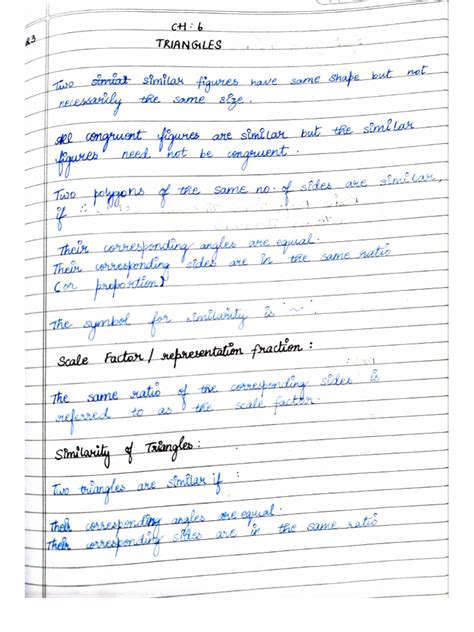 23
CH : 6
TRIANGLES
Two similar figures have same shape but not
necessarily the same size.
All congruent figures are similar but the similar
figures need not be congruent.
Two polygons of the same no. of sides are similar,
if :
Their corresponding angles are equal.
Their corresponding sides are in the same ratio
(or proportion)
The symbol for similarity is '~'.
Scale Factor / representation fraction :
The same ratio of the corresponding sides is
referred to as the scale factor.
Similarity of Triangles :
Two triangles are similar if :
Their corresponding angles are equal.
Their corresponding sides are in the same ratio